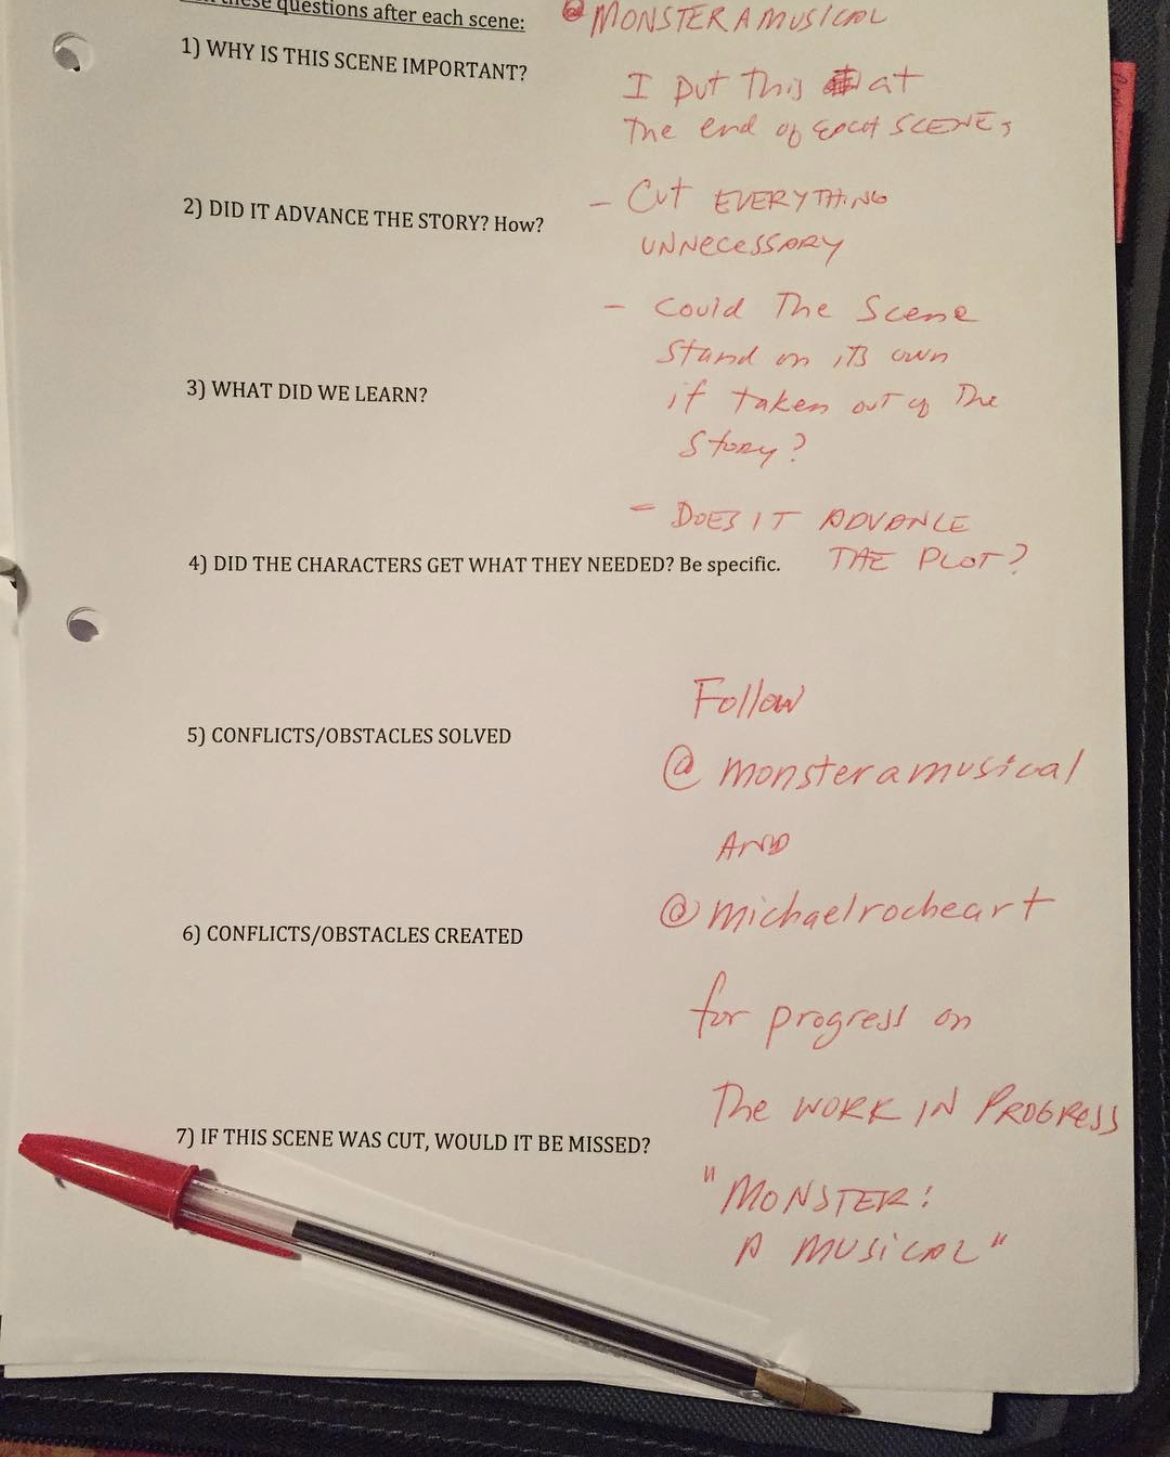 these questions after each scene:
@MONSTERAMUSICAL
1) WHY IS THIS SCENE IMPORTANT?
I put This at
The end of each SCENE,
2) DID IT ADVANCE THE STORY? How?
- Cut EVERYTHING
UNNECESSARY
- Could The Scene
Stand on its own
3) WHAT DID WE LEARN?
if taken out of The
Story?
- DOES IT ADVANCE
THE PLOT?
4) DID THE CHARACTERS GET WHAT THEY NEEDED? Be specific.
Follow
5) CONFLICTS/OBSTACLES SOLVED
@monsteramusical
AND
@michaelrocheart
6) CONFLICTS/OBSTACLES CREATED
for progress on
The WORK IN PROGRESS
7) IF THIS SCENE WAS CUT, WOULD IT BE MISSED?
"MONSTER:
A MUSICAL"